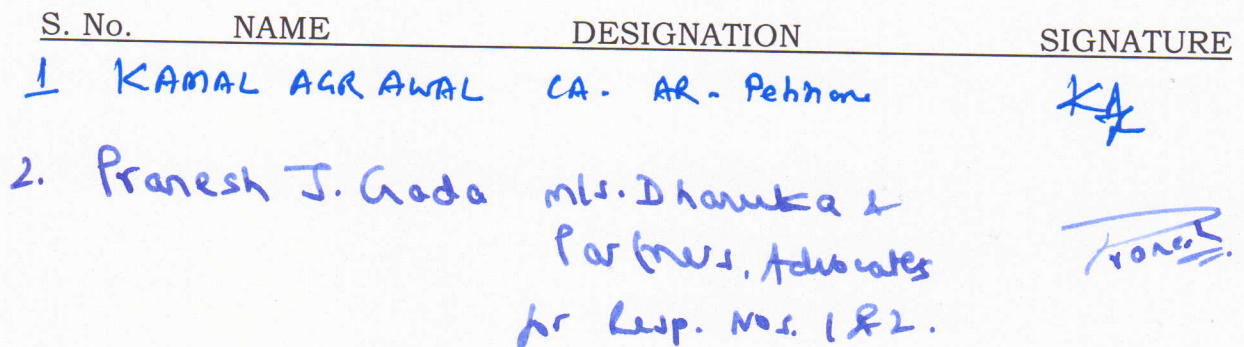 S. No. NAME DESIGNATION SIGNATURE
1 KAMAL AGRAWAL CA. AR-
2. Pranesh J. Gada M/s. Dhanuka &
Partners, Advocates Pranesh
for Resp. Nos. 1 & 2.